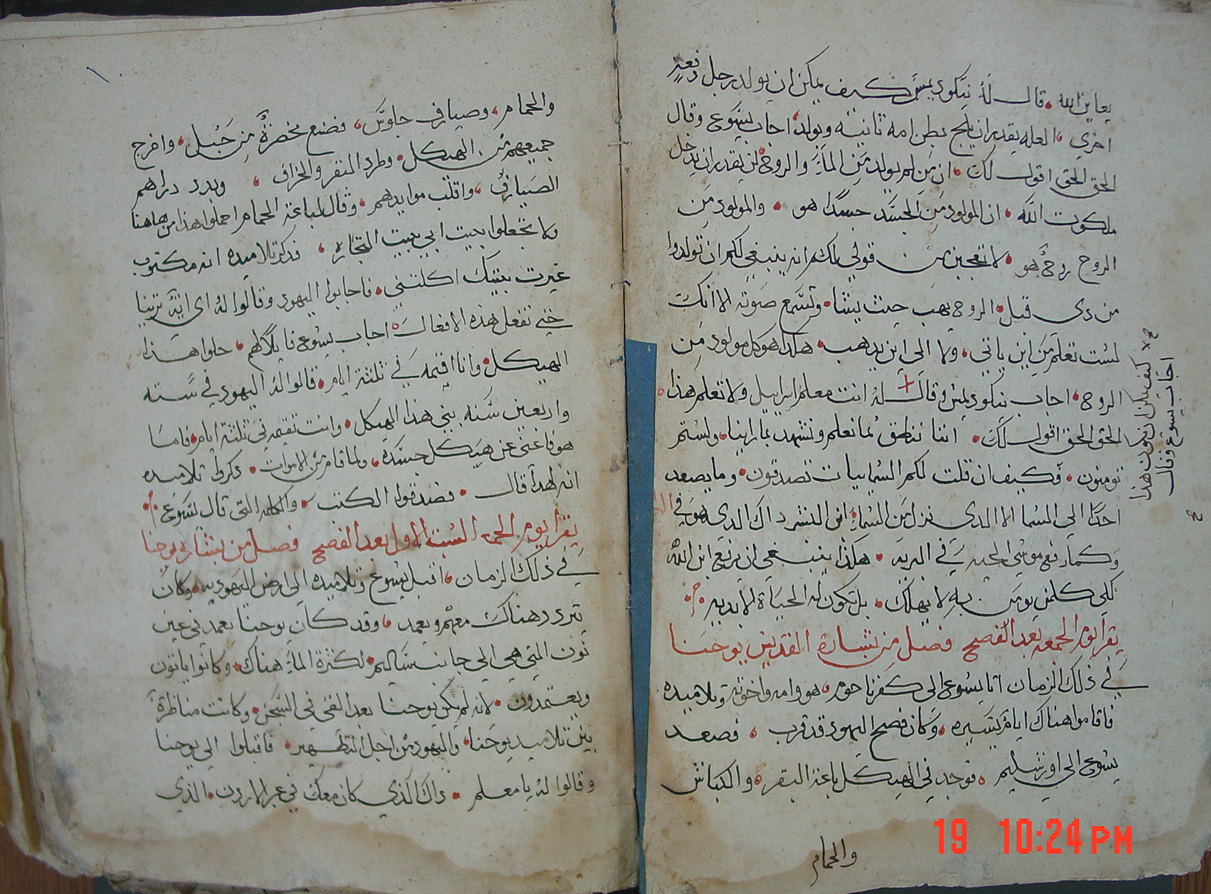 يعاين الله • قال له نيقوديمس كيف يمكن ان يولد رجل دفعة
اخري • العله يقدر ان يلج بطن امه ثانيه ويولد • اجاب يسوع وقال
الحق الحق اقول لك • ان من لم يولد من الماء والروح لن يقدر ان يدخل
ملكوت الله • ان المولود من الجسد جسدًا هو • والمولود من
الروح روحٌ هو • لا تعجبن من قولي لك انه ينبغي لكم ان تولدوا
من دي قبل • الروح يهب حيث يشا • وتسمع صوته الا انك
لست تعلم من اين ياتي • ولا الي اين يدهب • هكدا هو كل مولود من
الروح • اجاب نيكوديمس وقال له انت معلم اسراييل ولا تعلم هذا •
الحق الحق اقول لك • اننا ننطق بما نعلم ونشهد بما راينا • ولستم
تومنون • فكيف ان قلت لكم السماييات تصدقون • وما يصعد
احدًا الي السما الا الدي نزل من السما • ابن البشر داك الدي هو في
وكما رفع موسى الحيه في البريه • هكذا ينبغي ان يرتفع ابن الله
لكي كلمن يومن به لا يهلك • بل تكون له الحياة الابديه
يقرا يوم الجمعه بعد الفصح فصل من بشارة القديس يوحنا
في ذلك الزمان اتا يسوع الى كفرناحوم • هو وامه واخوته وتلاميده
فاقاموا هناك اياما يسيره • وكان فصح اليهود قد قرب • فصعد
يسوع الى اورشليم • فوجد في الهيكل باعة البقر • والكباش
والحمام
اجاب يسوع وقال
كيف يمكن ان يكون هدا
والحمام • وصيارف جلوس • فصنع مخصرةٌ من حَبْل • واخرج
جميعهم من الهيكل • وطرد البقر والخراف • وبدد دراهم
الصيارف • واقلب موايدهم • وقال لباعة الحمام احملوا هذا من هاهنا
ولا تجعلوا بيت ابي بيت التجاره • فدكر تلاميده انه مكتوب
غيرت بيتك اكلتني • فاجابوا اليهود وقالوا له اي اية ترينا
حتي تفعل هذه الافعال • اجاب يسوع قايلا لهم • حلوا هذا
الهيكل • وانا اقيمه في ثلثة ايام • قالوا له اليهود في سته
واربعين سنه بني هذا الهيكل • وانت تقيمه في ثلثة ايام • فاما
هو فاعنى عن هيكل جسده • ولما قام من الاموات • دكروا تلاميده
انه لهدا قال • فصدقوا الكتب • والكلمه التي قال يسوع
يقرا يوم الجمعه السبة الاول بعد الفصح فصل من بشارة يوحنا
في ذلك الزمان • اقبل يسوع وتلاميده الى ارض اليهوديه • وكان
تردد هناك معهم ويعمد • وقد كان يوحنا يعمد في عين
نون التي هي الي جانب ساليم • لكثرة الماء هناك • وكانوا ياتون
ويعتمدون • لانه لم يكن يوحنا بعد القي في السجن • وكانت مناظرة
بين تلاميد يوحنا • واليهود من اجل التطهير • فاقبلوا الي يوحنا
وقالوا له يا معلم • داك الذي كان معك في عبر الاردن • الذي
19 10:24 PM